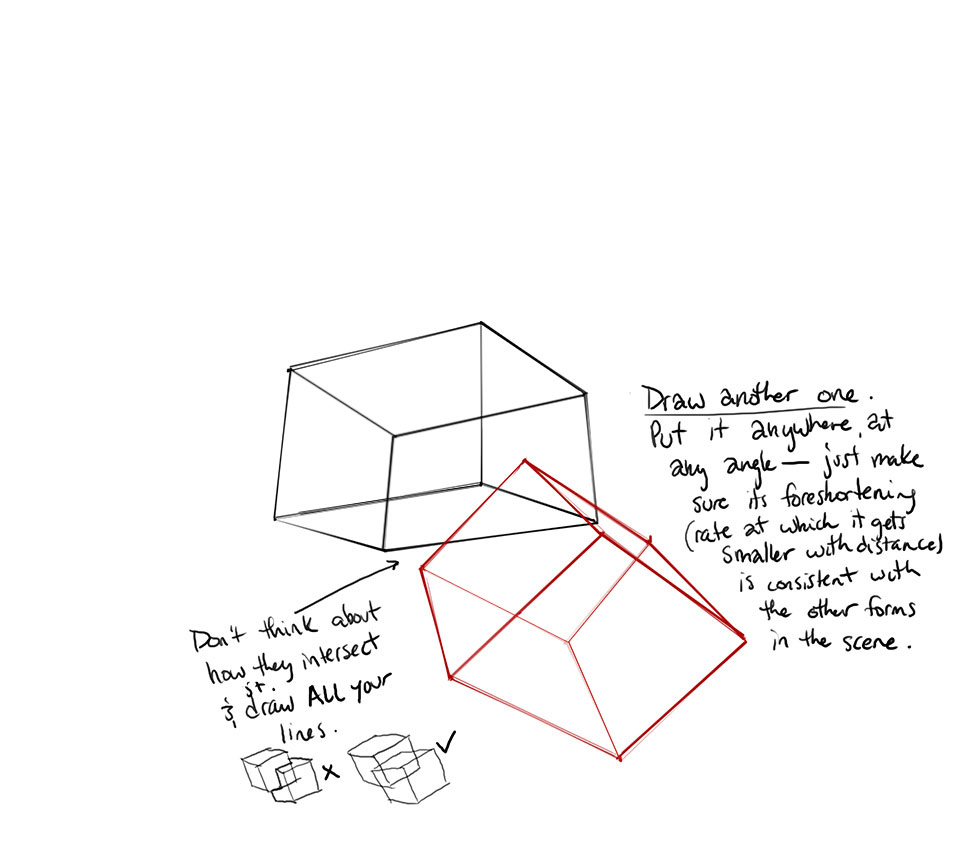 Draw another one.
Put it anywhere, at
any angle — just make
sure its foreshortening
(rate at which it gets
smaller with distance)
is consistent with
the other forms
in the scene.
Don't think about
how they intersect
yet.
& draw ALL your
lines.